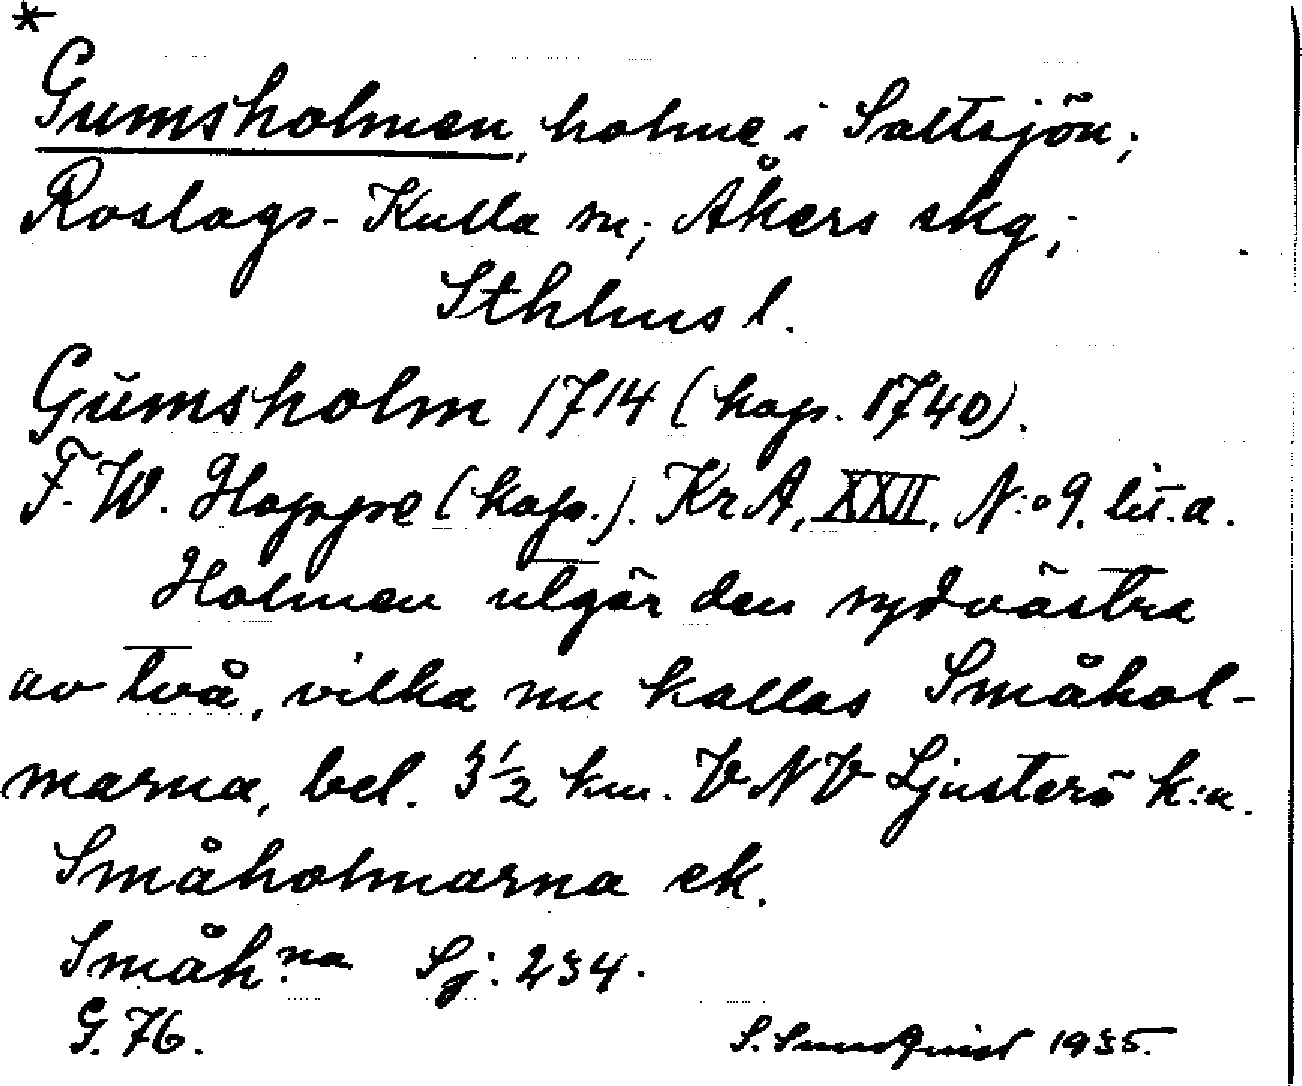 *
Gumsholmen, holme i Saltsjön;
Roslags-Kulla sn; Åkers skg;
Sthlms l.
Gŭmsholm 1714 (kop. 1740).
F. W. Hoppe (kop.). KrA, XXII, N:o 9. lit. a.
Holmen utgör den sydvästra
av två, vilka nu kallas Småhol-
marna, bel. 3 1/2 km. VNV Ljusterö k:a.
Småholmarna ek.
Småh:na Sj: 234.
G. 76.
S. Sundquist 1935.